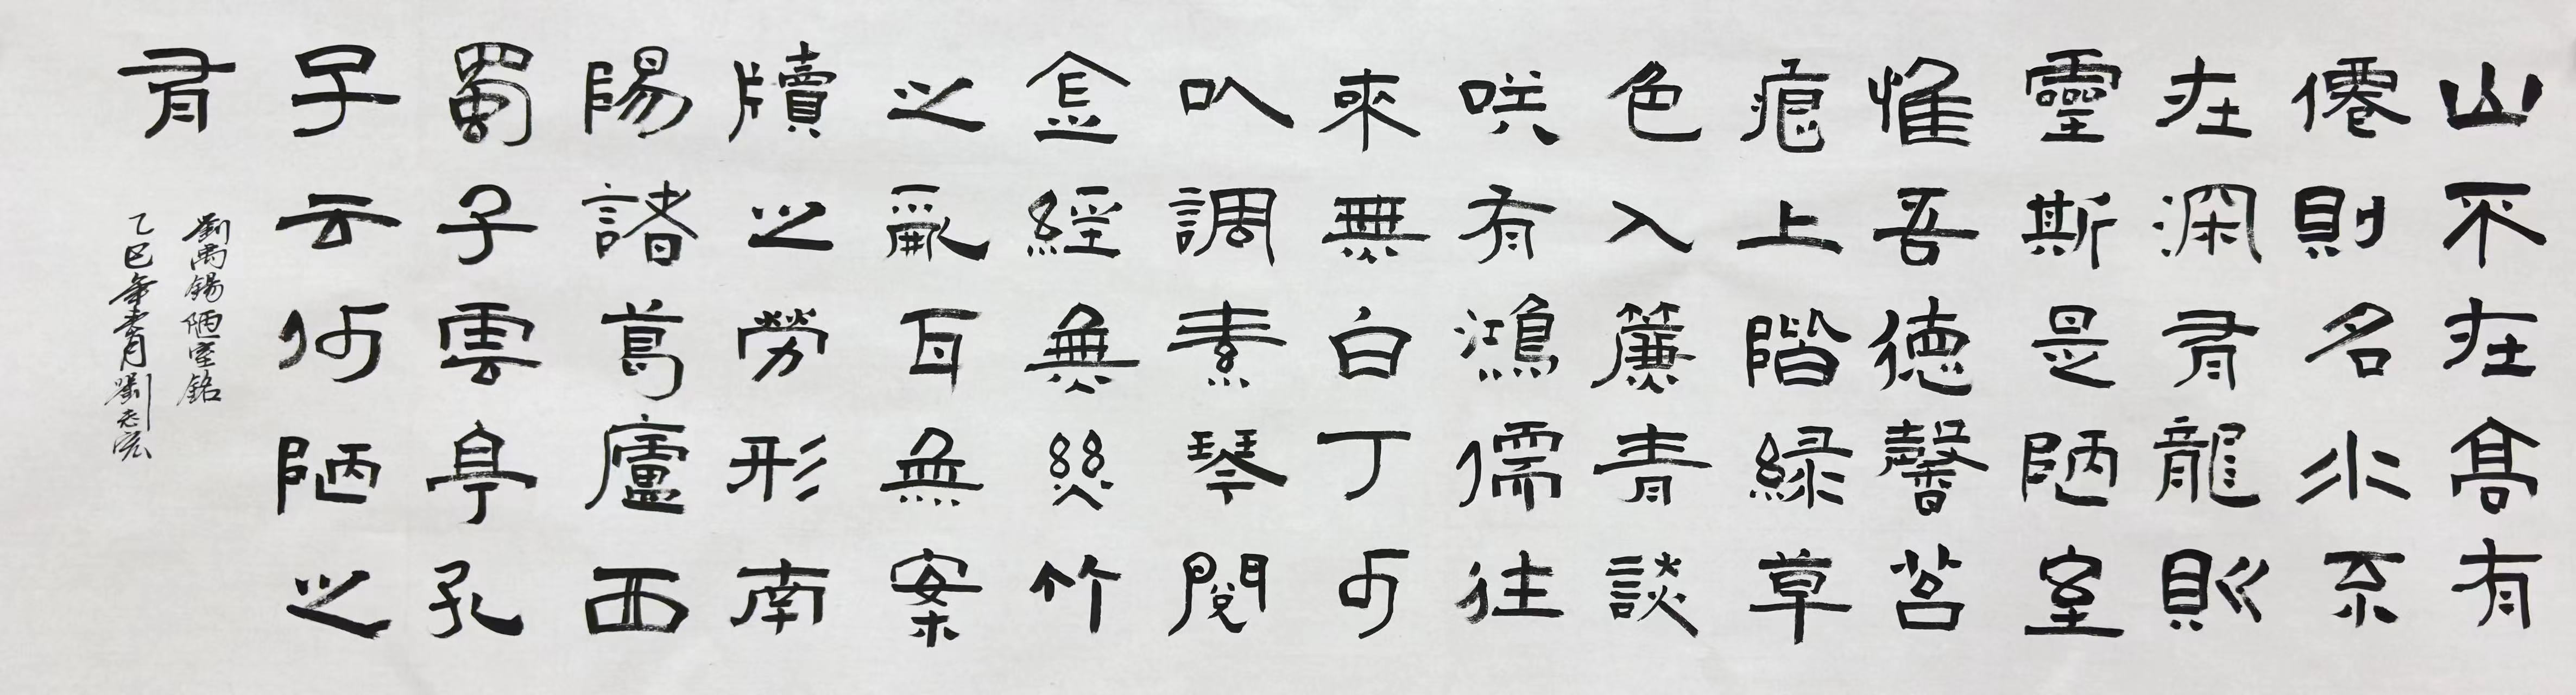 山不在高有
僊則名水不
在深有龍則
靈斯是陋室
惟吾德馨苔
痕上階綠草
色入簾青談
咲有鴻儒往
來無白丁可
以調素琴閱
金經無絲竹
之亂耳無案
牘之勞形南
陽諸葛廬西
蜀子雲亭孔
子云何陋之
有
劉禹錫陋室銘
乙巳年月劉志宏